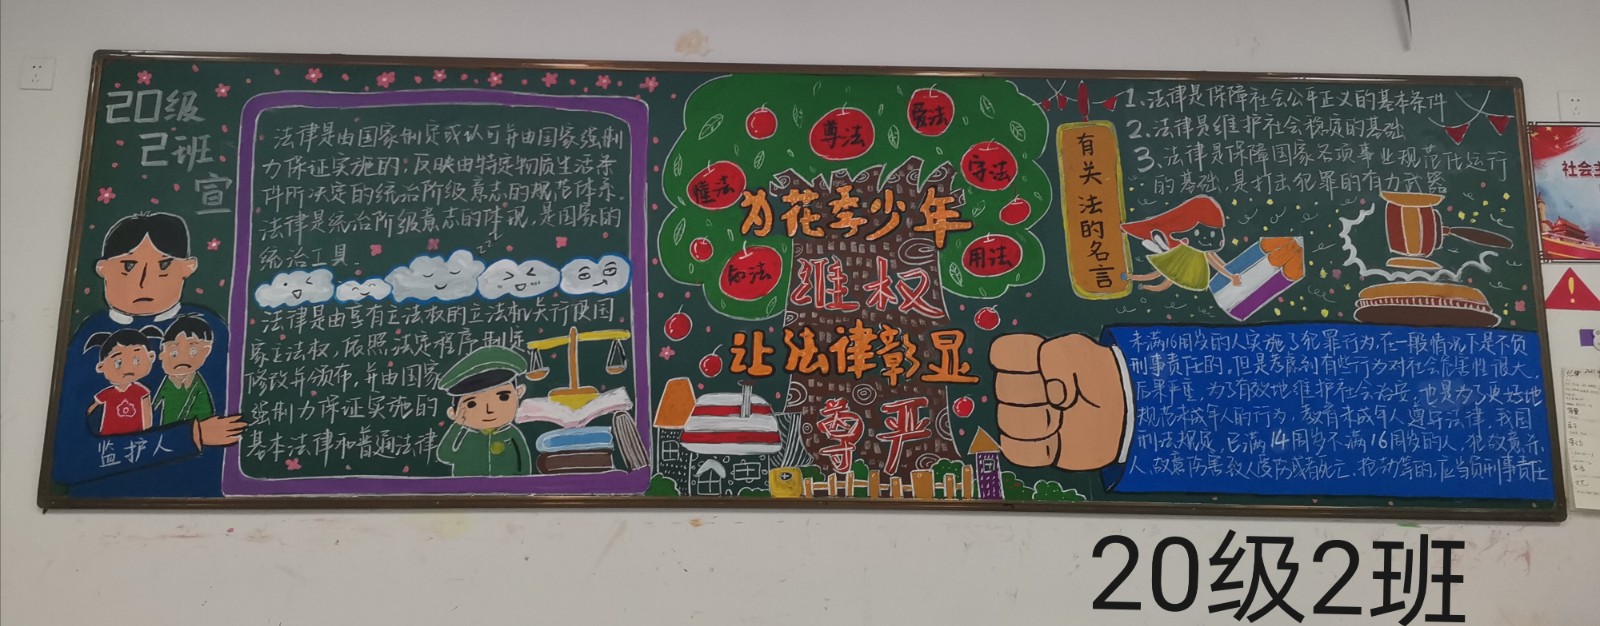 20级
2班
宣
法律是由国家制定或认可并由国家强制
力保证实施的,反映由特定物质生活条
件所决定的统治阶级意志的规范体系.
法律是统治阶级意志的体现,是国家的
统治工具.
zzz
法律是由享有立法权的立法机关行使国
家立法权,依照法定程序制定
修改并颁布,并由国家
强制力保证实施的
基本法律和普通法律
监护人
尊法
爱法
懂法
守法
知法
用法
为花季少年
维权
让法律彰显
尊严
有关法的名言
1、法律是保障社会公平正义的基本条件
2、法律是维护社会稳定的基础
3、法律是保障国家各项事业规范化运行
的基础,是打击犯罪的有力武器
未满16周岁的人实施了犯罪行为,在一般情况下是不负
刑事责任的,但是考虑到有些行为对社会危害性很大,
后果严重,为了有效地维护社会治安,也是为了更好地
规范未成年人的行为,教育未成年人遵守法律,我国
刑法规定,已满14周岁不满16周岁的人,犯故意杀
人、故意伤害致人重伤或者死亡、抢劫等的,应当负刑事责任
社会主
20级2班